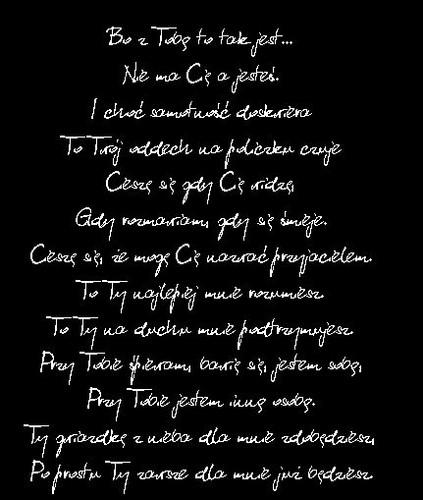 Bo z Tobą to tak jest...
Nie ma Cię a jesteś.
I choć samotność doskwiera
To Twój oddech na policzku czuję
Cieszę się gdy Cię widzę,
Gdy rozmawiam, gdy się śmieję.
Cieszę się, że mogę Cię nazwać przyjacielem.
To Ty najlepiej mnie rozumiesz
To Ty na duchu mnie podtrzymujesz
Przy Tobie śpiewam, bawię się, jestem sobą,
Przy Tobie jestem inną osobą.
Ty gwiazdkę z nieba dla mnie zdobędziesz,
Po prostu Ty zawsze dla mnie już będziesz.